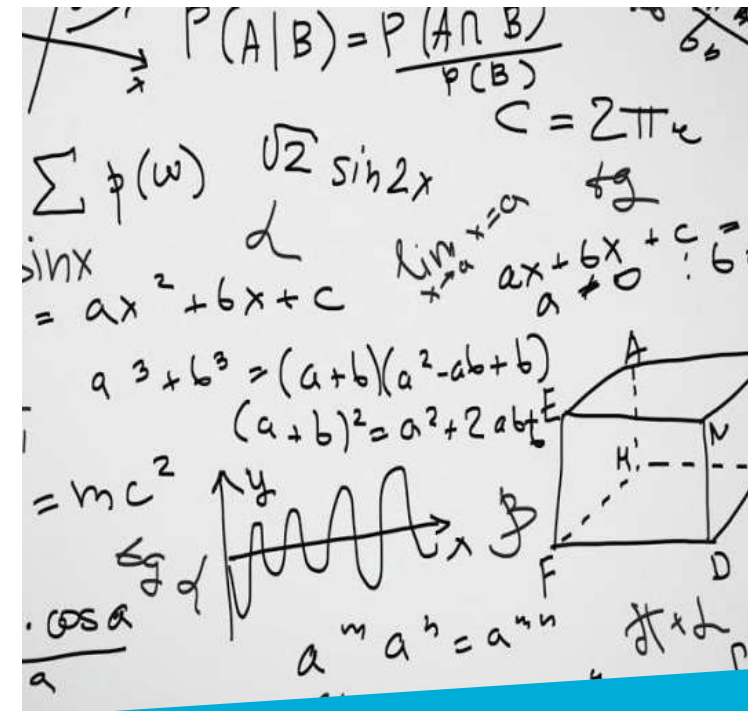 x P(A|B) = P(A∩B)/P(B)
C = 2πr
∑ p(w) √2 sin2x tg
sinx α lim x→a x=a
= ax² + bx + c ax + bx + c =
a ≠ 0
a³ + b³ = (a+b)(a²-ab+b)
(a+b)² = a² + 2ab+b
A
E N
= mc² y H
x β
tg α F D
cosa
a
aᵐ aⁿ = aᵐⁿ